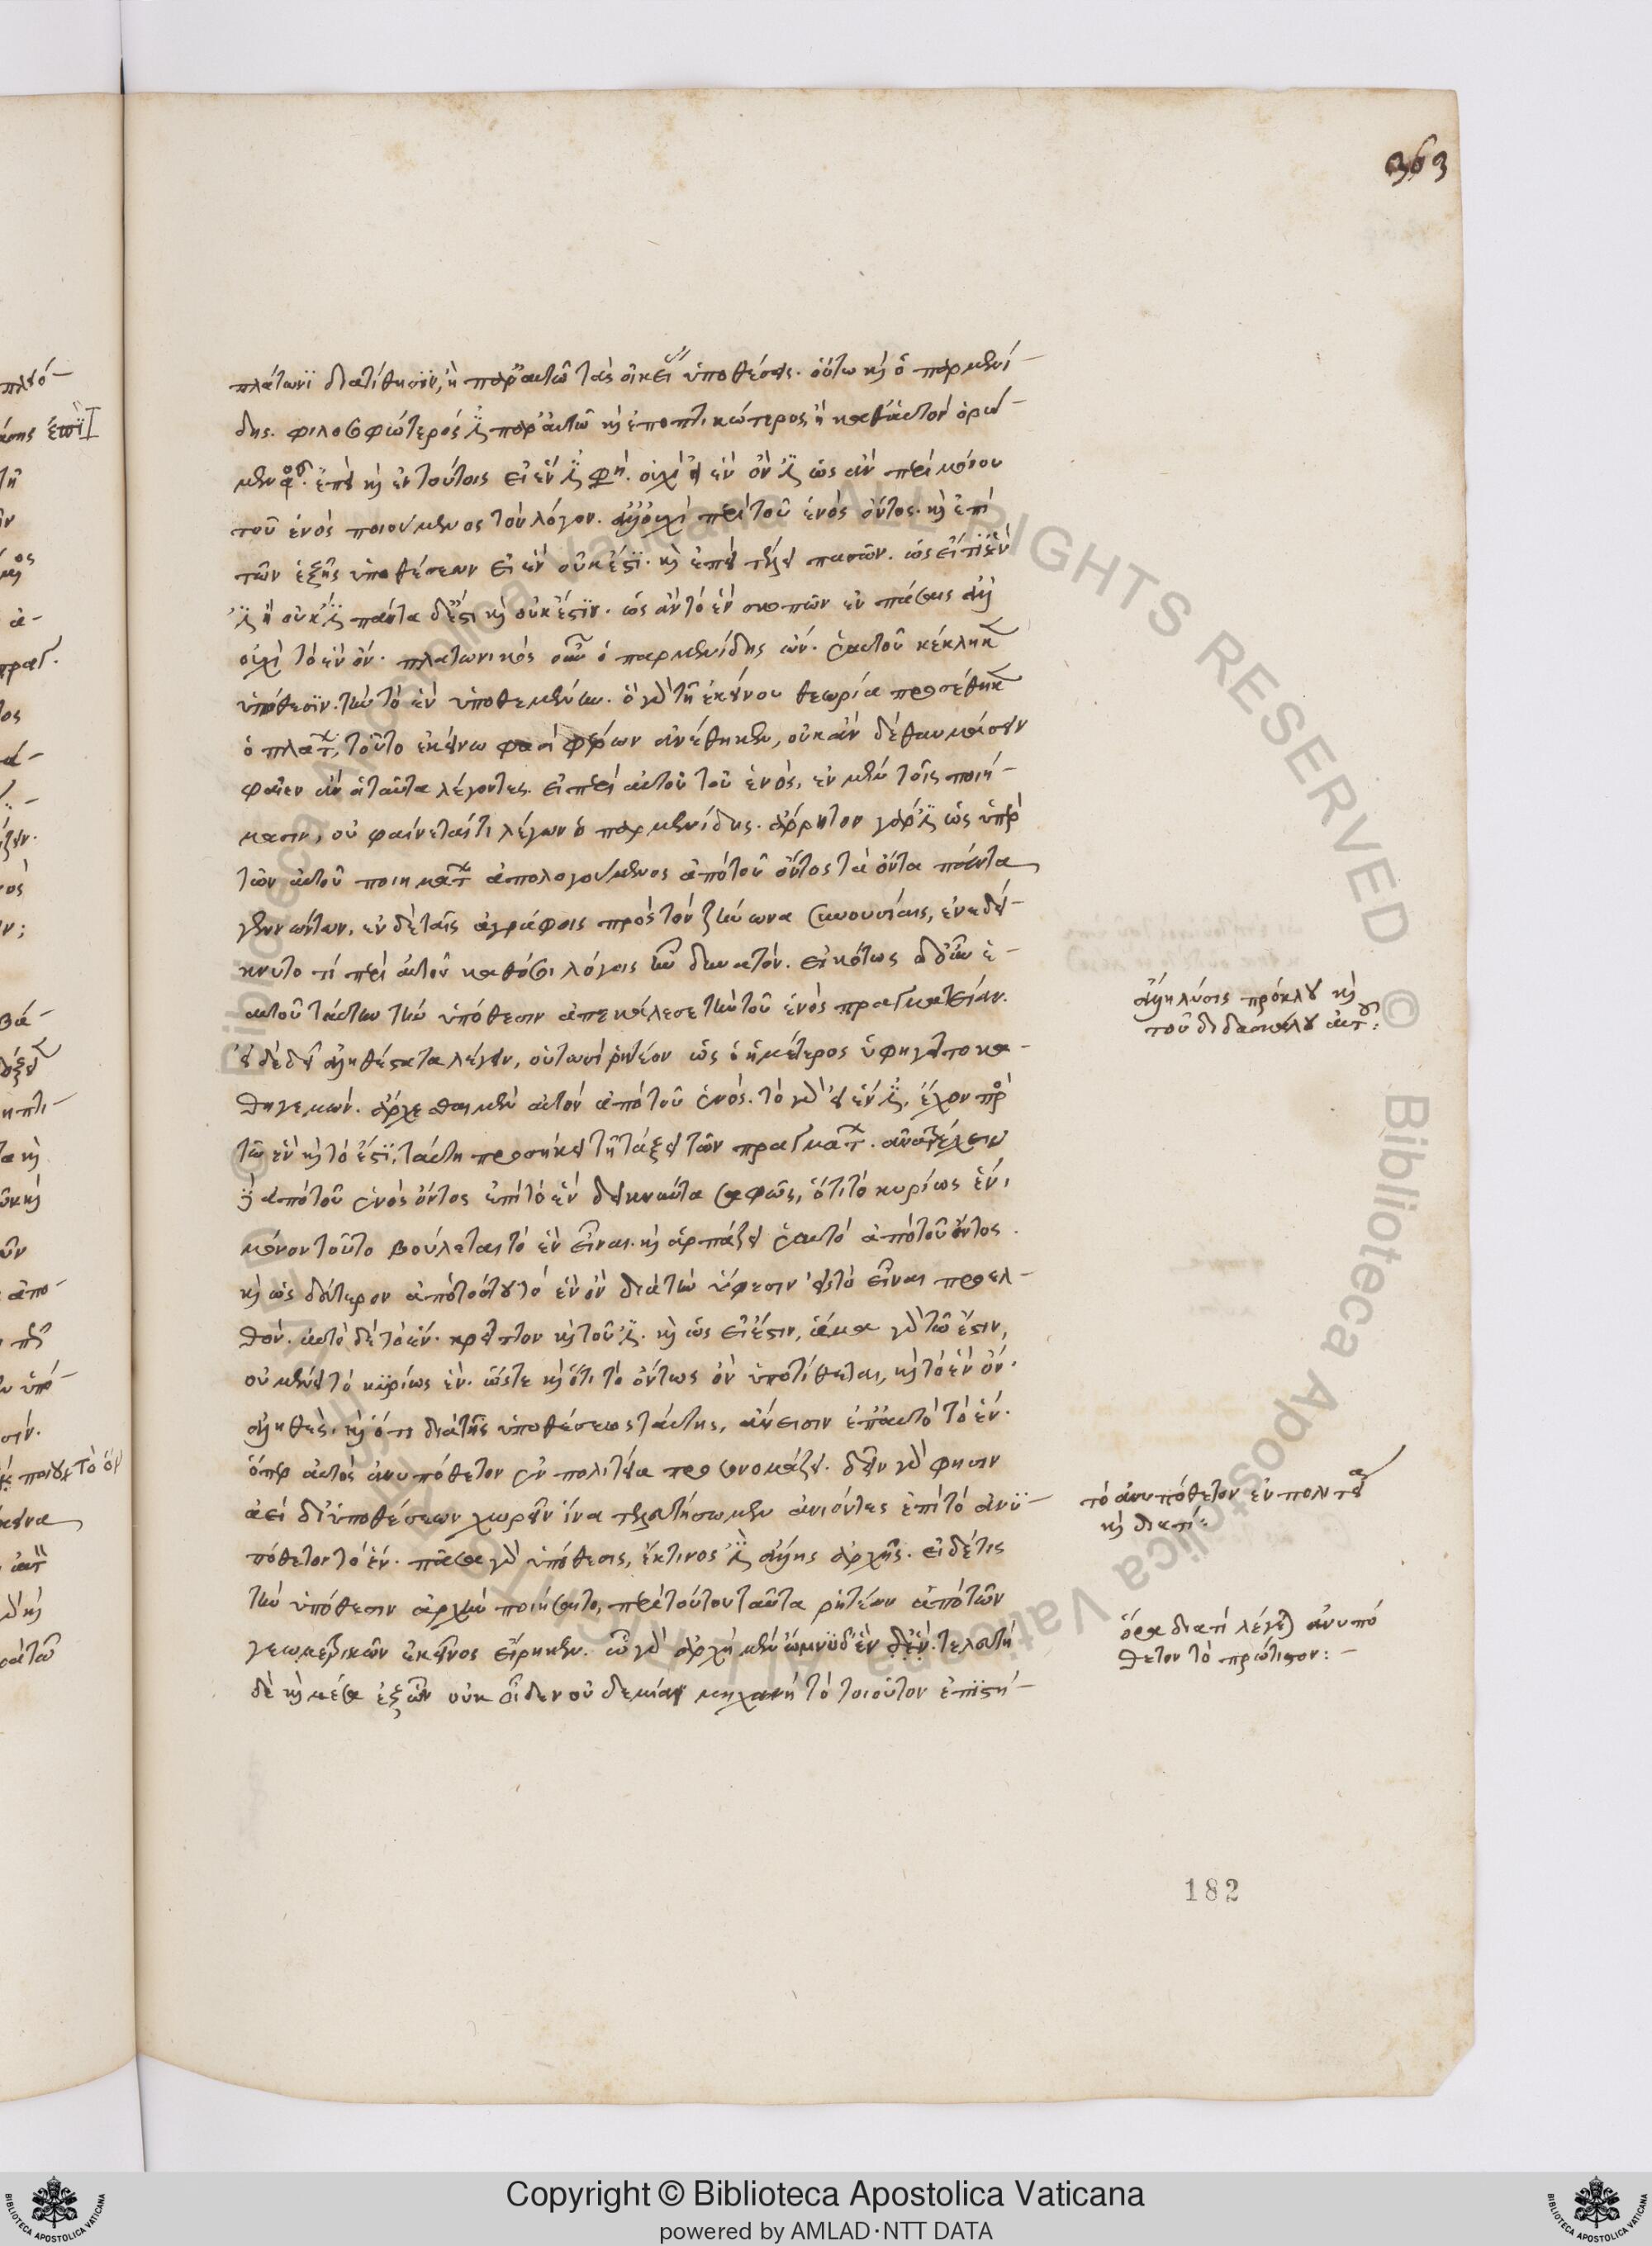 363
πλάτωνϊ διατίθησϊν, ἢ παρ' αὐτῶ τὰς οἰκεί ὑποθέσεις. οὕτω κὴ ὁ παρμενί-
δης. φιλοσοφώτερός ἐστι παρ' αὐτῶ κὴ ἐποπτικώτερος ἢ καθ' αὑτὸν ὁρώ-
μενος. ἐπεὶ κὴ ἐν τούτοις εἰ ἕν ἐστι φησί. οὐχὶ εἰ ἓν ὄν ἐστι ὡς ἂν περὶ μόνου
τοῦ ἑνὸς ποιούμενος τὸν λόγον. ἀλλ' οὐχὶ περὶ τοῦ ἑνὸς ὄντος. κὴ ἐπὶ
τῶν ἑξῆς ὑποθέσεων εἰ ἓν οὐκ ἔστϊ. κὴ ἐπὶ τέλει πασῶν. ὡς εἴτε ἓν
ἐστι ἢ οὐκ ἔστι πάντα δὲ ἔστι κὴ οὐκ ἔστϊν. ὡς ἂν τὸ ἓν σκοπῶν ἐν πάσαις ἀλλ'
οὐχὶ τὸ ἓν ὄν. πλατωνικὸς οὖν ὁ παρμενίδης ὤν. ἑαυτοῦ κέκληκε
ὑπόθεσϊν. τὴν τὸ ἓν ὑποθεμένην. ὃ γὰρ τῆ ἐκείνου θεωρία προσέθηκε
ὁ πλάτων, τοῦτο ἐκείνω φασὶ φέρων ἀνέθηκεν, οὐκ ἂν δὲ θαυμάσειν
φαῖεν ἂν οἱ ταῦτα λέγοντες. εἰ περὶ αὐτοῦ τοῦ ἑνὸς, ἐν μὲν τοῖς ποιή-
μασιν, οὐ φαίνεταί τι λέγων ὁ παρμενίδης. ἄρρητον γάρ ἐστι ὡς ὑπὲρ
τῶν αὐτοῦ ποιημάτων ἀπολογούμενος ἀπὸ τοῦ ὄντος τὰ ὄντα πάντα
γεννώντων. ἐν δὲ ταῖς ἀγράφοις πρὸς τὸν ζήνωνα συνουσίαις, ἐνεδεί-
κνυτο τί περὶ αὐτοῦ καθόσον λόγοις ἦν δυνατόν. εἰκότως οὖν ἑ-
αυτοῦ ταύτην τὴν ὑπόθεσιν ἀπεκάλεσε τὴν τοῦ ἑνὸς πραγματείαν.
εἰ δὲ δεῖ ἀληθέστατα λέγειν, οὑτωσὶ ῥητέον ὡς ὁ ἡμέτερος ὑφηγεῖτο κα-
θηγεμών. ἄρχεσθαι μὲν αὐτὸν ἀπὸ τοῦ ἑνός. τὸ γὰρ εἰ ἕν ἐστι, ἔχον πρὸς
τῶ ἓν κὴ τὸ ἔστϊ, ταύτη προσήκει τῆ τάξει τῶν πραγμάτων. ἀνατρέχειν
δὲ ἀπὸ τοῦ ἑνὸς ὄντος ἐπὶ τὸ ἓν δεικνύντα σαφῶς, ὅτι τὸ κυρίως ἕν,
μόνον τοῦτο βούλεται τὸ ἓν εἶναι. κὴ ἁρπάζει ἑαυτὸ ἀπὸ τοῦ ὄντος.
κὴ ὡς δεύτερον ἀπὸ τούτου τὸ ἓν ὂν διὰ τὴν ὕφεσιν εἰς τὸ εἶναι προελ-
θόν. αὐτὸ δὲ τὸ ἕν. κρεῖττον κὴ τοῦ ἔστι. κὴ ὡς εἰ ἔστιν, ἅμα γὰρ τῶ ἔστιν,
οὐ μένει τὸ κυρίως ἕν. ὥστε κὴ ὅτι τὸ ὄντως ὂν ὑποτίθεται, κὴ τὸ ἓν ὄν.
ἀληθές. κὴ ὅτι διὰ τῆς ὑποθέσεως ταύτης, ἄνεισιν ἐπ' αὐτὸ τὸ ἕν.
ὅπερ αὐτὸς ἀνυπόθετον ἐν πολιτεία προσονομάζει. δεῖν γὰρ φησιν
ἀεὶ δι' ὑποθέσεων χωρεῖν ἵνα τελευτήσωμεν ἀνιόντες ἐπὶ τὸ ἀνϋ-
πόθετον τὸ ἕν. πᾶσα γὰρ ὑπόθεσις, ἔκ τινος ἐστι ἄλλης ἀρχῆς. εἰ δέ τις
τὴν ὑπόθεσιν ἀρχὴν ποιήσαιτο, περὶ τούτου ταῦτα ῥητέον ἃ περὶ τῶν
γεωμετρικῶν ἐκεῖνος εἴρηκεν. ὧ γὰρ ἀρχὴ μὲν ὃ μὴ οἶδεν. τελευτὴ
δὲ κὴ μέσα ἐξ ὧν οὐκ οἶδεν οὐδεμία μηχανὴ τὸ τοιοῦτον ἐπϊστή-
ἄλλη λύσις πρόκλου κὴ
τοῦ διδασκάλου αὐτοῦ:
τὸ ἀνυπόθετον ἐν πολιτεία
κὴ διατί:
ὅρα διατί λέγεται ἀνυπό
θετον τὸ πρώτιστον: -
182
Copyright © Biblioteca Apostolica Vaticana
powered by AMLAD·NTT DATA